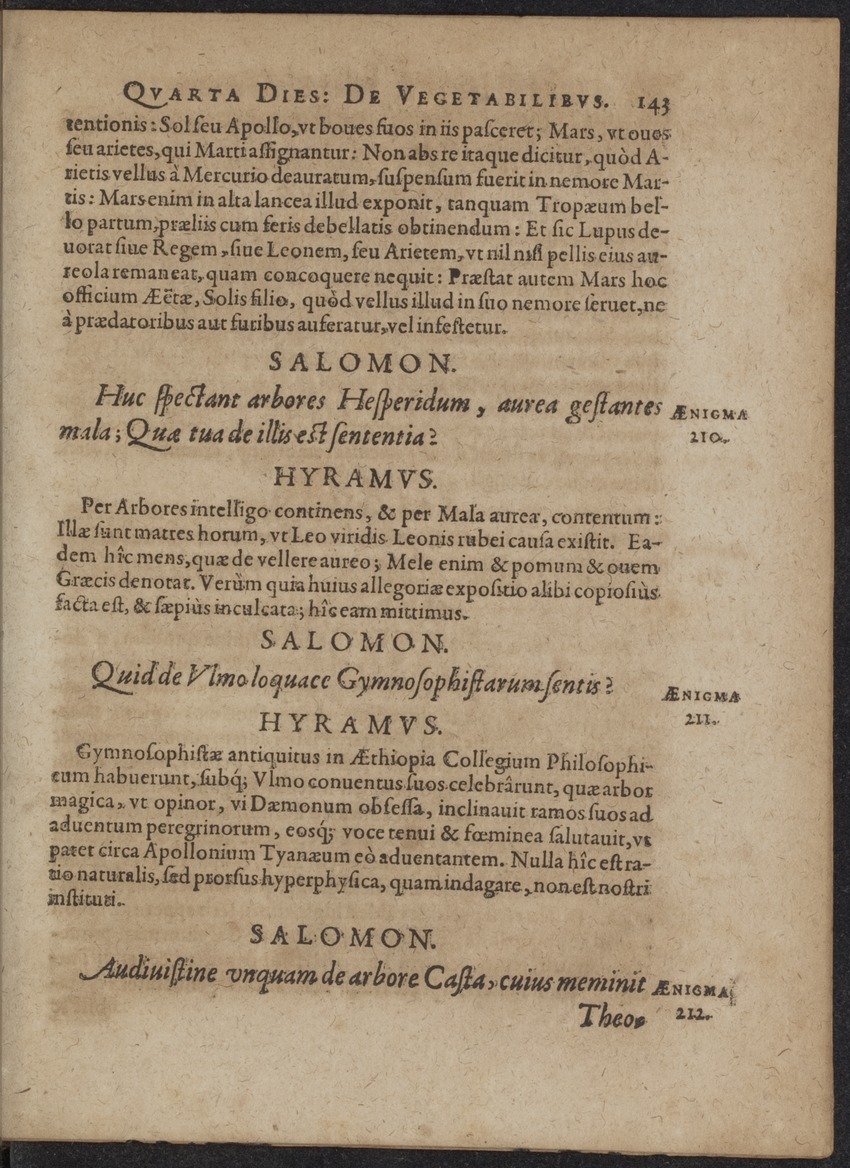 QVARTA DIES: DE VEGETABILIBVS. 143
tentionis: Sol seu Apollo, vt boues suos in iis pasceret; Mars, vt oues
seu arietes, qui Marti assignantur: Non abs re itaque dicitur, quòd A-
rietis vellus à Mercurio deauratum, suspensum fuerit in nemore Mar-
tis: Mars enim in alta lancea illud exponit, tanquam Tropæum bel-
lo partum, præliis cum feris debellatis obtinendum: Et sic Lupus de-
uorat siue Regem, siue Leonem, seu Arietem, vt nil nisi pellis eius au-
reola remaneat, quam concoquere nequit: Præstat autem Mars hoc
officium Æëtæ, Solis filio, quòd vellus illud in suo nemore seruet, ne
à prædatoribus aut furibus auferatur, vel infestetur.
SALOMON.
Huc spectant arbores Hesperidum, aurea gestantes ÆNIGMA
mala; Quæ tua de illis est sententia? 210.
HYRAMVS.
Per Arbores intelligo continens, & per Mala aurea, contentum:
Illæ sunt matres horum, vt Leo viridis Leonis rubei causa existit. Ea-
dem hîc mens, quæ de vellere aureo; Mele enim & pomum & ouem
Græcis denotat. Verùm quia huius allegoriæ expositio alibi copiosiùs
facta est, & sæpiùs inculcata; hîc eam mittimus.
SALOMON.
Quid de Vlmo loquace Gymnosophistarum sentis? ÆNIGMA
211.
HYRAMVS.
Gymnosophistæ antiquitus in Æthiopia Collegium Philosophi-
cum habuerunt, subq́; Vlmo conuentus suos celebrârunt, quæ arbor
magica, vt opinor, vi Dæmonum obsessa, inclinauit ramos suos ad
aduentum peregrinorum, eosq́; voce tenui & fœminea salutauit, vt
patet circa Apollonium Tyanæum eò aduentantem. Nulla hîc est ra-
tio naturalis, sed prorsus hyperphysica, quam indagare, non est nostri
instituti.
SALOMON.
Audiuistine vnquam de arbore Casta, cuius meminit ÆNIGMA
Theo- 212.